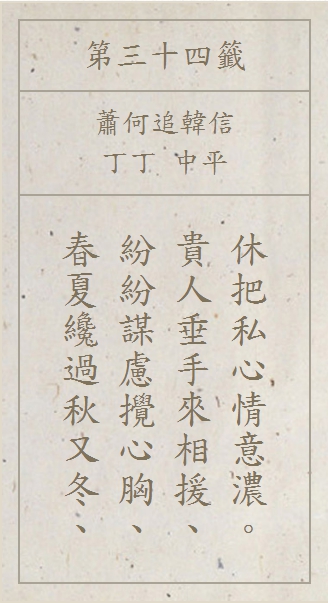 第三十四籤
蕭何追韓信
丁丁 中平
春夏纔過秋又冬、
紛紛謀慮攪心胸、
貴人垂手來相援、
休把私心情意濃。